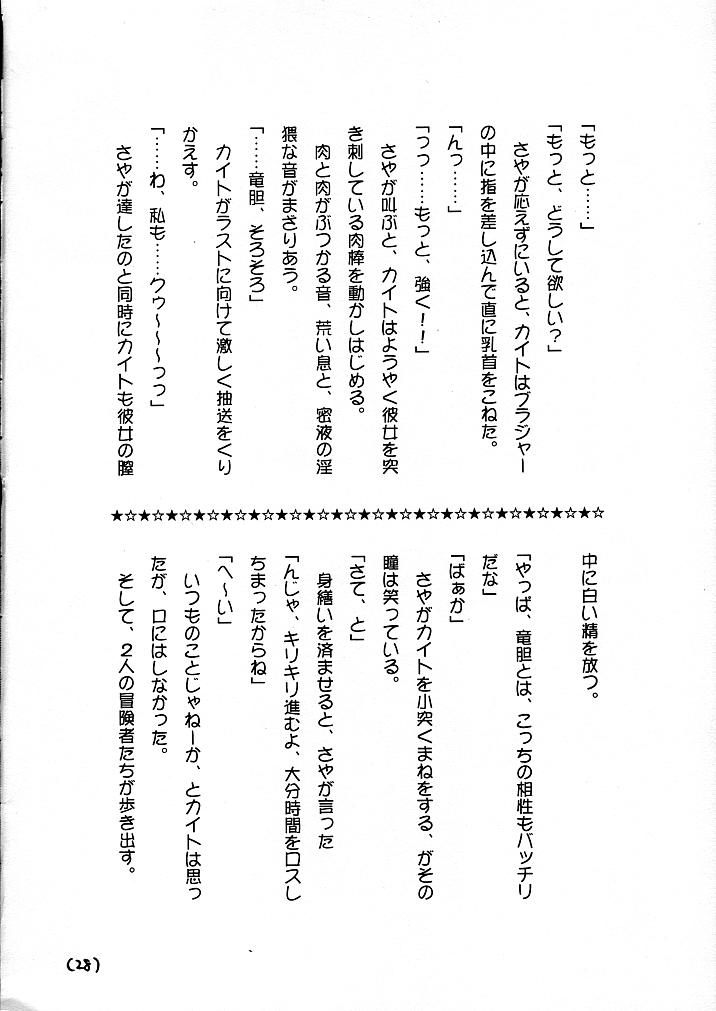 「もっと……」
「もっと、どうして欲しい？」
　さやが応えずにいると、カイトはブラジャー
の中に指を差し込んで直に乳首をこねた。
「んっ……」
「つっ……もっと、強く！！」
　さやが叫ぶと、カイトはようやく彼女を突
き刺している肉棒を動かしはじめる。
　肉と肉がぶつかる音、荒い息と、密液の淫
猥な音がまざりあう。
「……竜胆、そろそろ」
　カイトがラストに向けて激しく抽送をくり
かえす。
「……わ、私も……クゥ～～～っっ」
　さやが達したのと同時にカイトも彼女の膣
★☆★☆★☆★☆★☆★☆★☆★☆★☆★☆★☆★☆★☆★☆★☆★☆★☆★☆
中に白い精を放つ。
「やっぱ、竜胆とは、こっちの相性もバッチリ
だな」
「ばぁか」
　さやがカイトを小突くまねをする、がその
瞳は笑っている。
「さて、と」
　身繕いを済ませると、さやが言った
「んじゃ、キリキリ進むよ、大分時間をロスし
ちまったからね」
「へ～い」
　いつものことじゃねーか、とカイトは思っ
たが、口にはしなかった。
　そして、２人の冒険者たちが歩き出す。
(28)